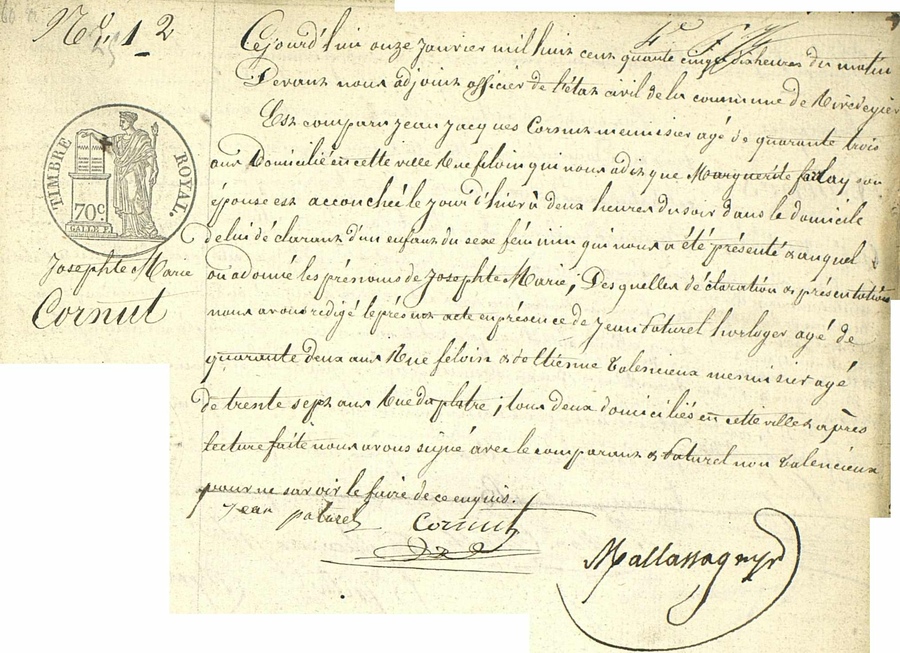 N° 12
Cejourd'hui onze Janvier mil huit cent quarante cinq dix heures du matin
Devant nous adjoint officier de l'état civil de la commune de Rivedegier
Est comparu Jean Jacques Cornut menuisier agé de quarante trois
ans Domicilié en cette ville Rue féloin qui nous a dit que Marguerite farlay son
épouse est accouchée le jour d'hier à deux heures du soir dans le domicile
de lui déclarant d'un enfant du sexe féminin qui nous a été présenté & auquel
on a donné les prénoms de Josephte Marie; Des quelles déclaration & présentation
nous avons rédigé le présent acte en présence de Jean Paturel horloger agé de
quarante deux ans Rue féloin & d'Etienne Valencieux menuisier agé
de trente sept ans Rue du platre; tous deux domiciliés en cette ville & après
lecture faite nous avons signé avec le comparant & Paturel non Valencieux
pour ne savoir le faire de ce enquis.
TIMBRE ROYAL.
70c
GALLE F.
Josephte Marie
Cornut
Jean paturel Cornut